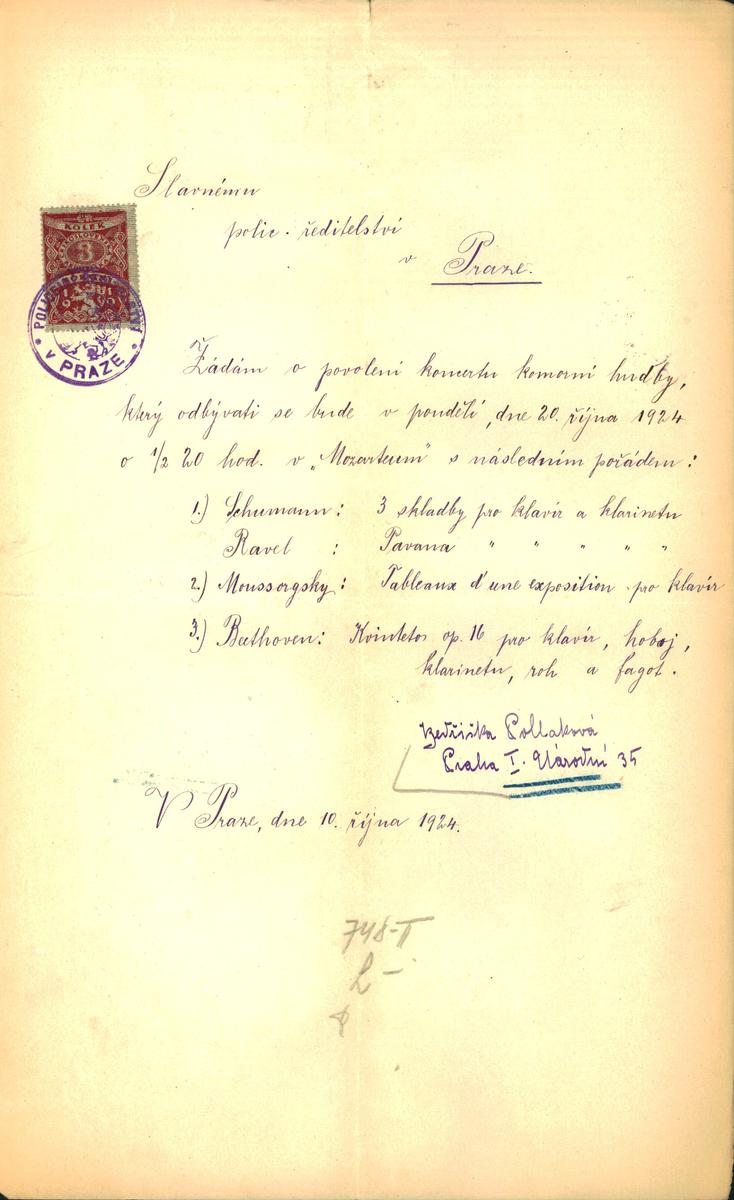 Slavnému
polic. ředitelství
v Praze.
KOLEK
3
v PRAZE
Žádám o povolení koncertu komorní hudby,
který odbývati se bude v pondělí, dne 20. října 1924
o 1/2 20 hod. v „Mozarteum" s následním pořádem:
1.) Schumann: 3 skladby pro klavír a klarinetu
Ravel : Pavana " " " " "
2.) Moussorgsky: Tableaux d'une exposition pro klavír
3.) Beethoven: Kvinteto op. 16 pro klavír, hoboj,
klarinetu, roh a fagot.
Bedřiška Pollaková
Praha I. Národní 35
V Praze, dne 10. října 1924.
748-II